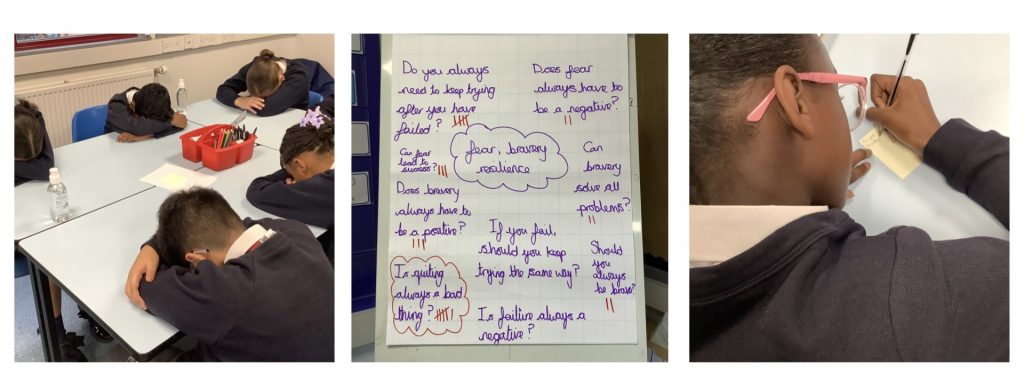 Do you always
need to keep trying
after you have
failed?
Does fear
always have to
be a negative?
fear, bravery
resilience
Can fear
lead to
success?
Can
bravery
solve all
problems?
Does bravery
always have to
be a positive?
If you fail,
should you keep
trying the same way?
Should
you
always
be brave?
Is quiting
always a bad
thing?
Is failive always a
negative?